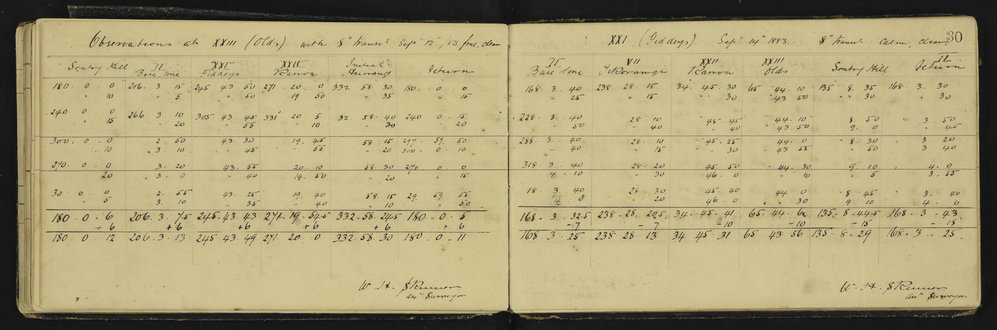 Observations at XXIII (Olds) with 8" transit Sept 12th /83 fine, clear
Sentry Hill II Base line XXI Giddeys XXII Kawroa Initial Return
180 . 0 . 0 206 . 3 . 15 245 . 43 . 50 271 . 20 . 0 332 . 58 . 30 180 . 0 . 0
10 5 50 19 50 35 15
240 . 0 . 0 266 . 3 . 10 305 . 43 . 45 331 . 20 . 5 32 . 58 . 40 240 . 0 . 15
15 20 55 10 30 20
300 . 0 . 0 2 . 50 43 . 30 19 . 45 58 . 15 299 . 59 . 50
10 3 . 10 45 55 20 300 . 0 . 10
270 . 0 . 0 3 . 20 43 . 55 20 . 10 58 . 30 270 . 0 . 0
20 3 . 0 40 19 . 50 20 15
30 . 0 . 0 2 . 55 43 . 25 19 . 40 58 . 15 29 . 59 . 55
5 3 . 10 35 40 10 50
180 . 0 . 6 206 . 3 . 7.5 245 . 43 . 43 271 . 19 . 54.5 332 . 58 . 24.5 180 . 0 . 5
+6 +6 +6 +6 +6 +6
180 . 0 . 12 206 . 3 . 13 245 . 43 . 49 271 . 20 . 0 332 . 58 . 30 180 . 0 . 11
W. H. Skinner
Asst Surveyor
30
XXI (Giddeys) Sept 14th 1883. 8" transit Calm, clear
II Base line VII XXII Kawroa XXIII Olds Sentry Hill II Return
168 . 3 . 40 238 . 28 . 15 34 . 45 . 30 65 . 44 . 10 135 . 8 . 35 168 . 3 . 30
25 15 30 43 50 30 30
228 . 3 . 40 28 . 10 45 . 45 44 . 10 8 . 50 3 . 50
50 40 40 43 50 9 . 0 45
288 . 3 . 40 28 . 10 45 . 25 44 . 0 8 . 30 3 . 20
40 15 30 43 55 50 3 40
318 . 3 . 40 28 . 20 45 50 44 . 30 9 . 10 4 . 0
4 . 10 30 46 . 0 10 5 3 . 55
18 . 3 . 40 28 . 30 45 . 40 44 . 0 8 . 45 3 . 40
4 . 0 20 46 . 0 30 9 10 4 . 0
168 . 3 . 32.5 238 . 28 . 20.5 34 . 45 . 41 65 . 44 . 6 135 . 8 . 44.5 168 . 3 . 43
-7 -7 -10 -10 -15 -18
168 . 3 . 25 238 . 28 . 13 34 . 45 . 31 65 . 43 . 56 135 . 8 . 29 168 . 3 . 25
W. H. Skinner
Asst Surveyor